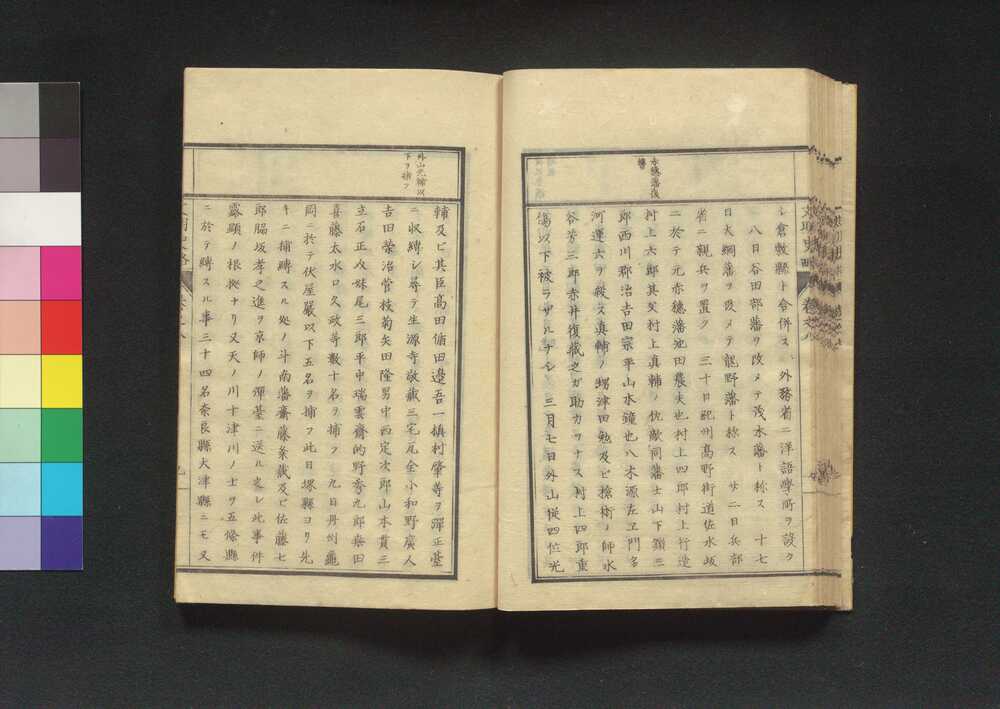 シ倉敷縣ト合併ス 外務省ニ洋語學所ヲ設ク
八日谷田部藩ヲ改メテ茂木藩ト称ス 十七
日大網藩ヲ改メテ龍崎藩ト称ス 廿二日兵部
省ニ親兵ヲ置ク 三十日紀州高野街道佐水峠
ニ於テ元赤穂藩池田農夫也村上四郎村上行造
村上六郎其父村上真輔ノ仇敵同藩士山下鋭三
郎西川郡治吉田宗平山水鐘也八木源左ヱ門多
河運六ヲ殺ス真輔ノ甥津田勉及ビ槍術ノ師水
谷芳三郎赤井復蔵之ガ助力ヲナス村上四郎重
傷以下被ラザルナシ 三月七日外山従四位光
外山光輔以
下ヲ捕フ
輔及ビ其臣高田脩田邉吾一槙村肇等ヲ彈正臺
ニ収縛シ尋テ生源寺敬蔵三宅瓦全小和野廣人
吉田榮治菅枝菊矢田隆男中西定次郎山本貫三
立石正攵妹尾三郎平中瑞雲齋的野秀九郎柴田
喜藤太水口久政等數十名ヲ捕フ 九日丹州龜
岡ニ於テ伏屋嚴以下五名ヲ捕フ此日堺縣ヨリ先
キニ捕縛スル処ノ斗南藩齋藤条蔵及ビ佐藤七
郎脇坂孝之進ヲ京師ノ彈臺ニ送ル蓋シ此事件
露顕ノ根拠ナリ又天ノ川十津川ノ士ヲ五條縣
ニ於テ縛スル事三十四名奈良縣大津縣ニモ又